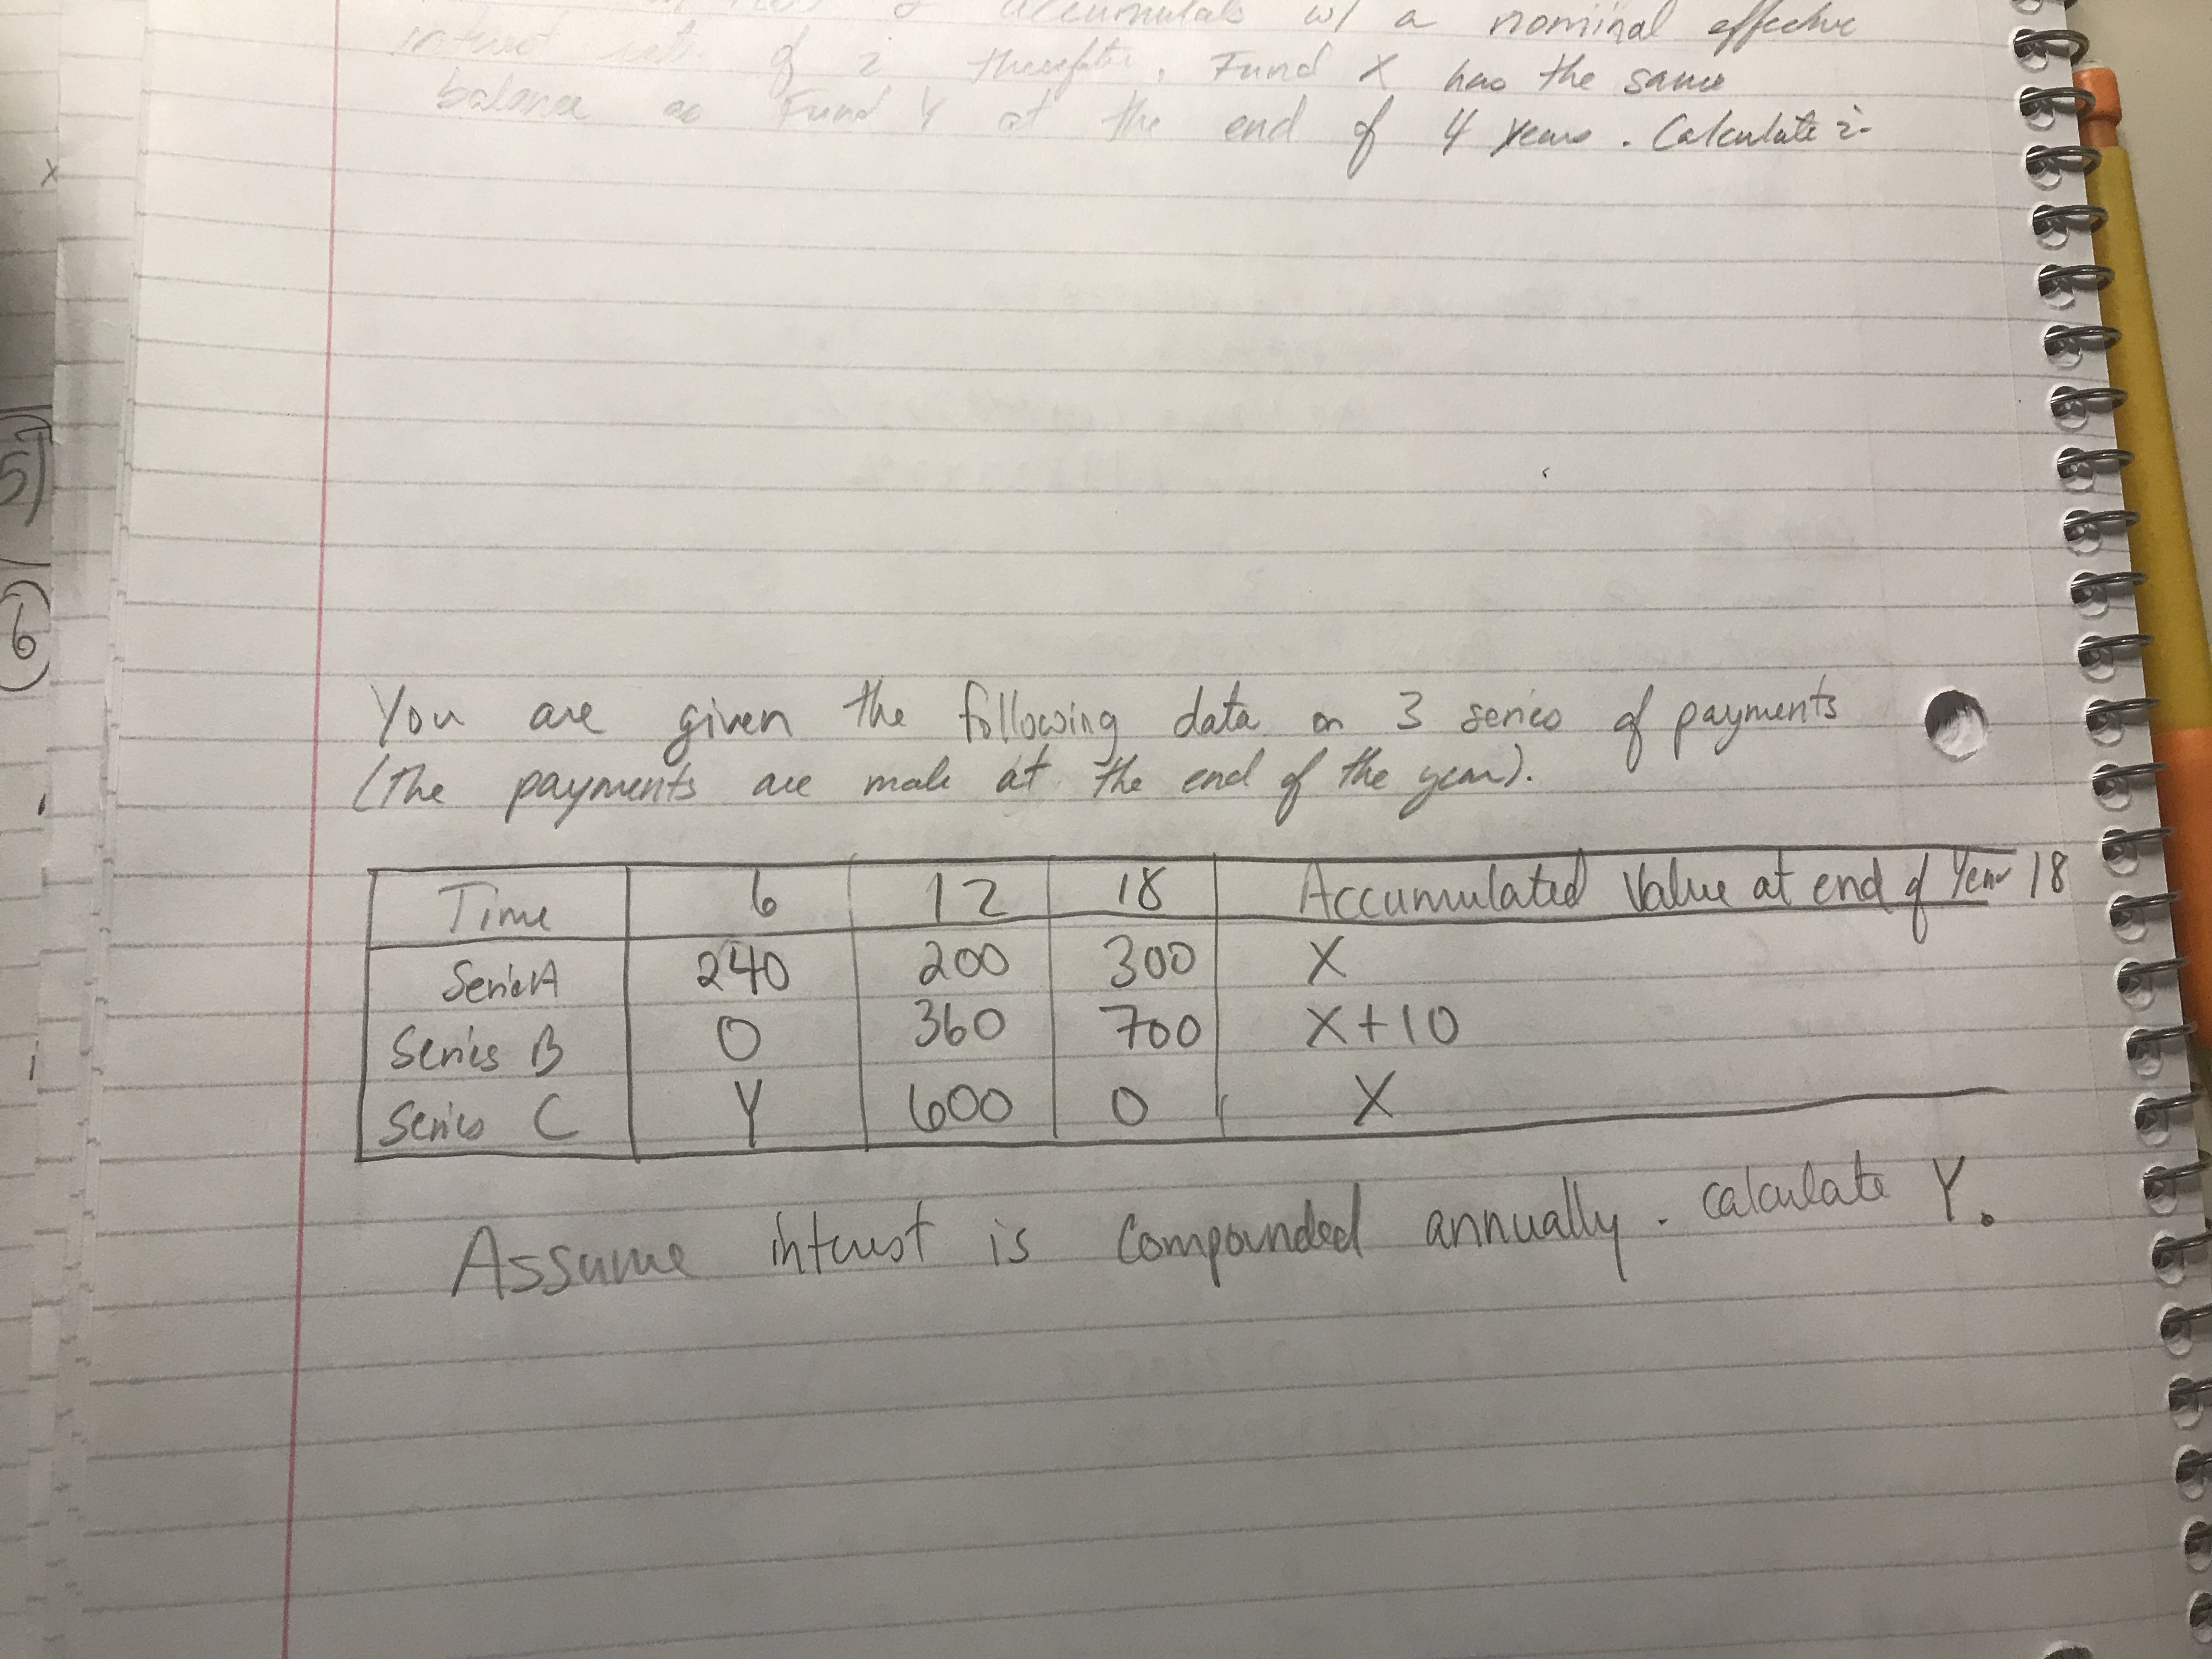 accumulate w/ a nominal effective
interest rate of i thereafter. Fund X has the same
balance as Fund Y at the end of 4 years. Calculate i.
x
5
6
You are given the following data on 3 series of payments
(the payments are made at the end of the year).
Time 6 12 18 Accumulated Value at end of Year 18
Series A 240 200 300 X
Series B 0 360 700 X+10
Series C Y 600 0 X
Assume interest is compounded annually. calculate Y.